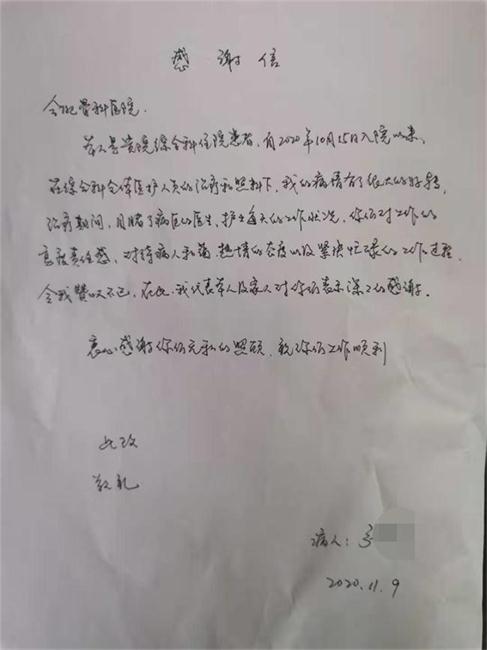 感谢信
骨科医院.
本人是贵院综合科住院患者, 自2020年10月15日入院以来,
在综合科全体医护人员的治疗和照料下, 我的病情有了很大的好转,
治疗期间, 目睹了病区的医生, 护士每天的工作状况, 你们对工作的
高度责任感, 对待病人和蔼热情的态度以及紧张忙碌的工作过程,
令我赞叹不已, 在此, 我代表本人及家人对你们表示深深的感谢.
衷心感谢你们无私的照顾, 祝你们工作顺利
此致
敬礼
病人:
2020.11.9